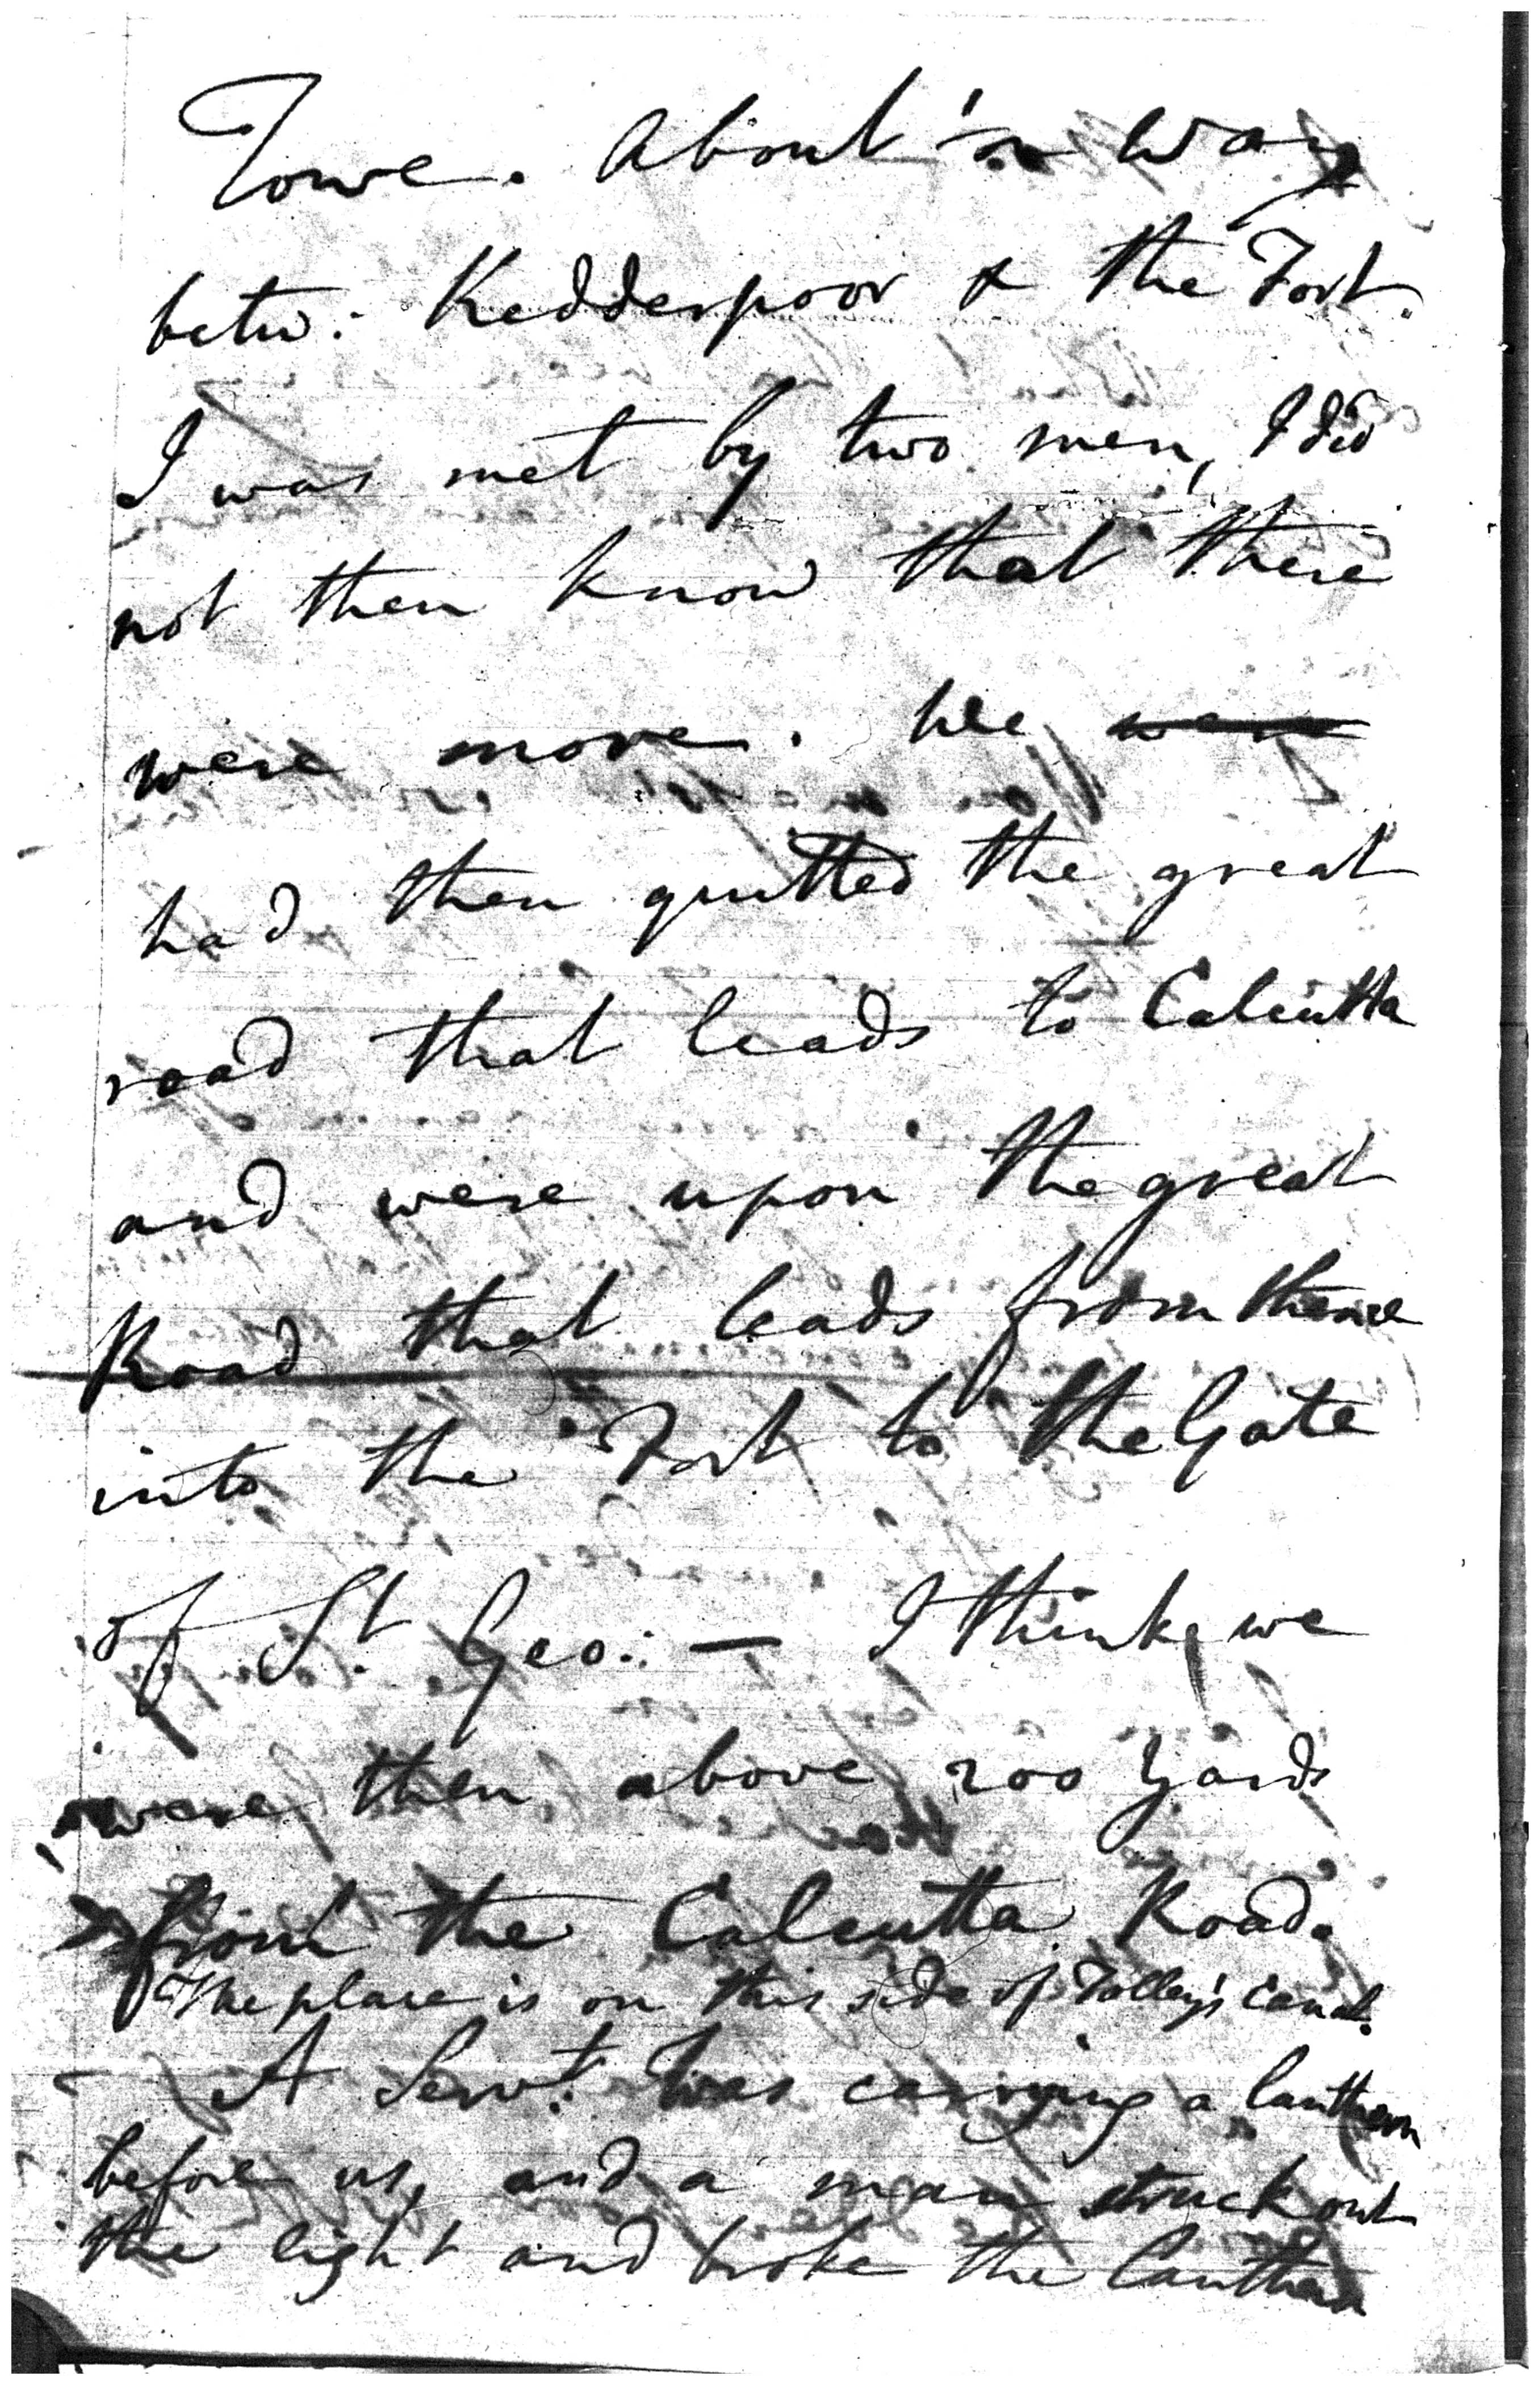 Lowe. About ½ way
betw: Kedderpoor & the Fort.
I was met by two men, I did
not then know that there
were more. We were
had then quitted the great
road that leads to Calcutta
and were upon the great
Road that leads from thence
into the Fort to the Gate
of St. Geo: — I think, we
were then above 200 Yards
from the Calcutta Road.
The place is on this side of Tolley's Canal.
A Servt. was carrying a lanthern
before us, and a man struck out
the light and broke the lanthern